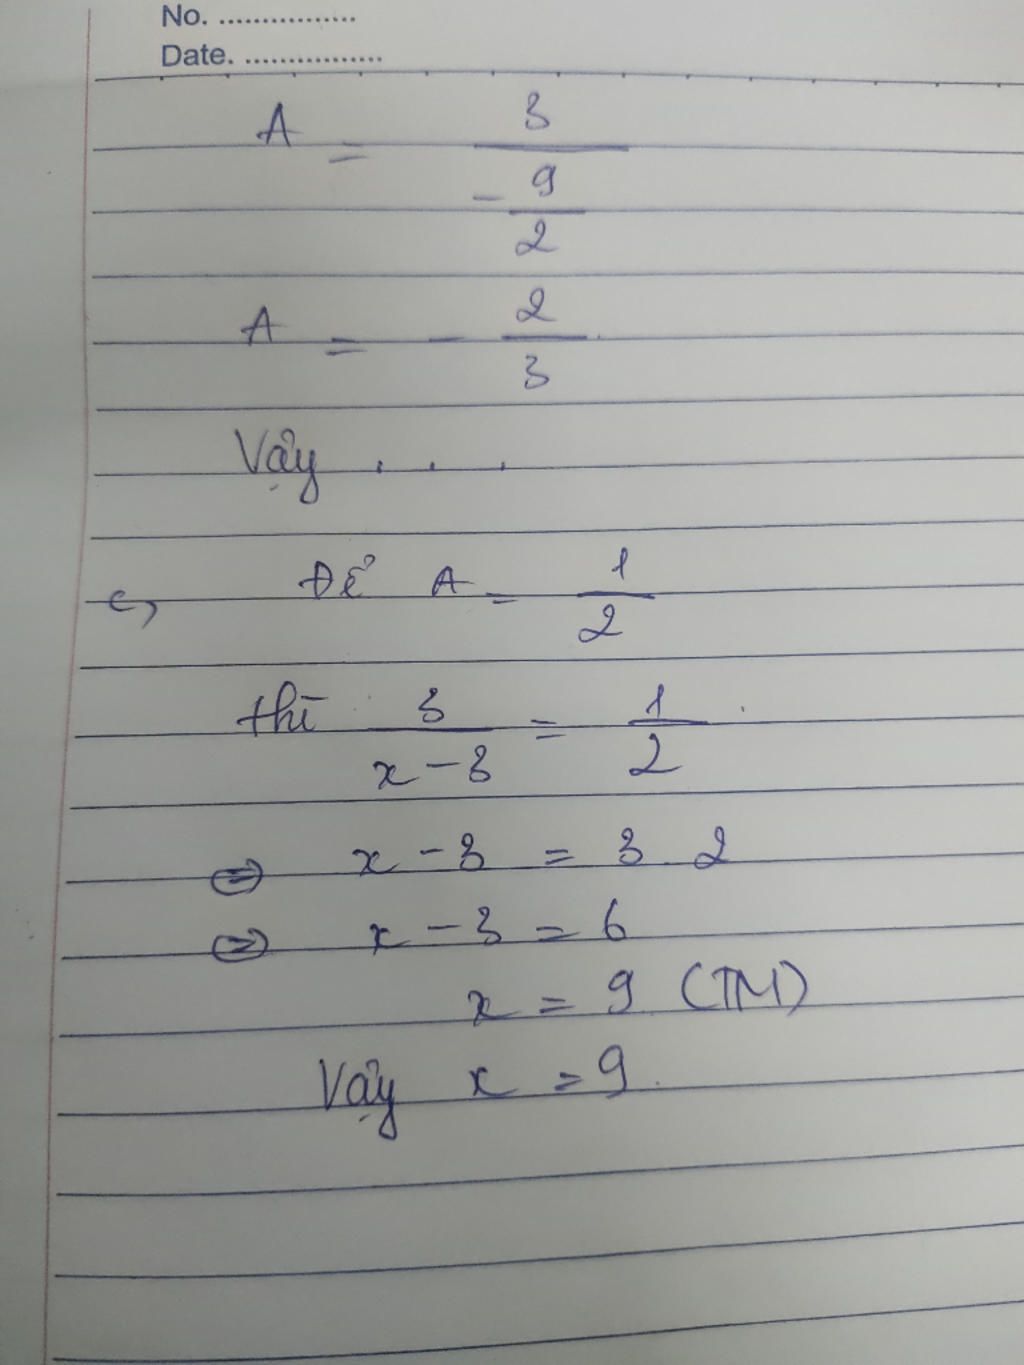 No. ................
Date. ................
A = 3 / (- 9/2)
A = - 2/3
Vậy . . .
c, Để A = 1/2
thì 3/(x - 3) = 1/2
⇔ x - 3 = 3 . 2
⇔ x - 3 = 6
x = 9 (TM)
Vậy x = 9.